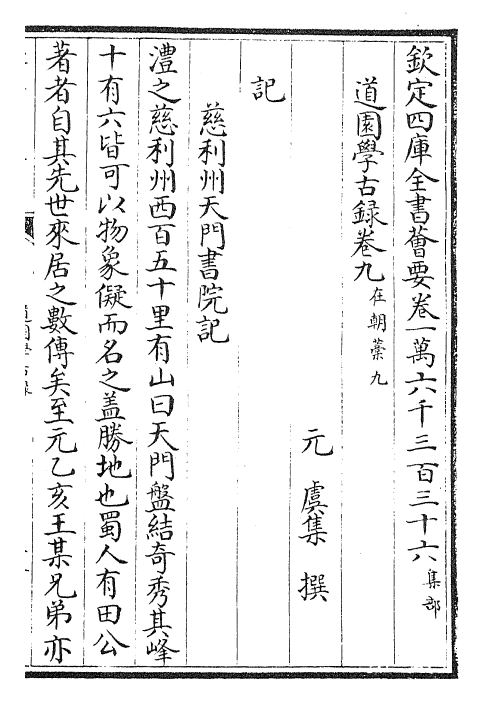 欽定四庫全書薈要卷一萬六千三百三十六集部
道園學古録卷九在朝藁九
元虞集撰
記
慈利州天門書院記
澧之慈利州西百五十里有山曰天門盤結奇秀其峰
十有六皆可以物象儗而名之盖勝地也蜀人有田公
著者自其先世來居之數傳矣至元乙亥王某兄弟亦